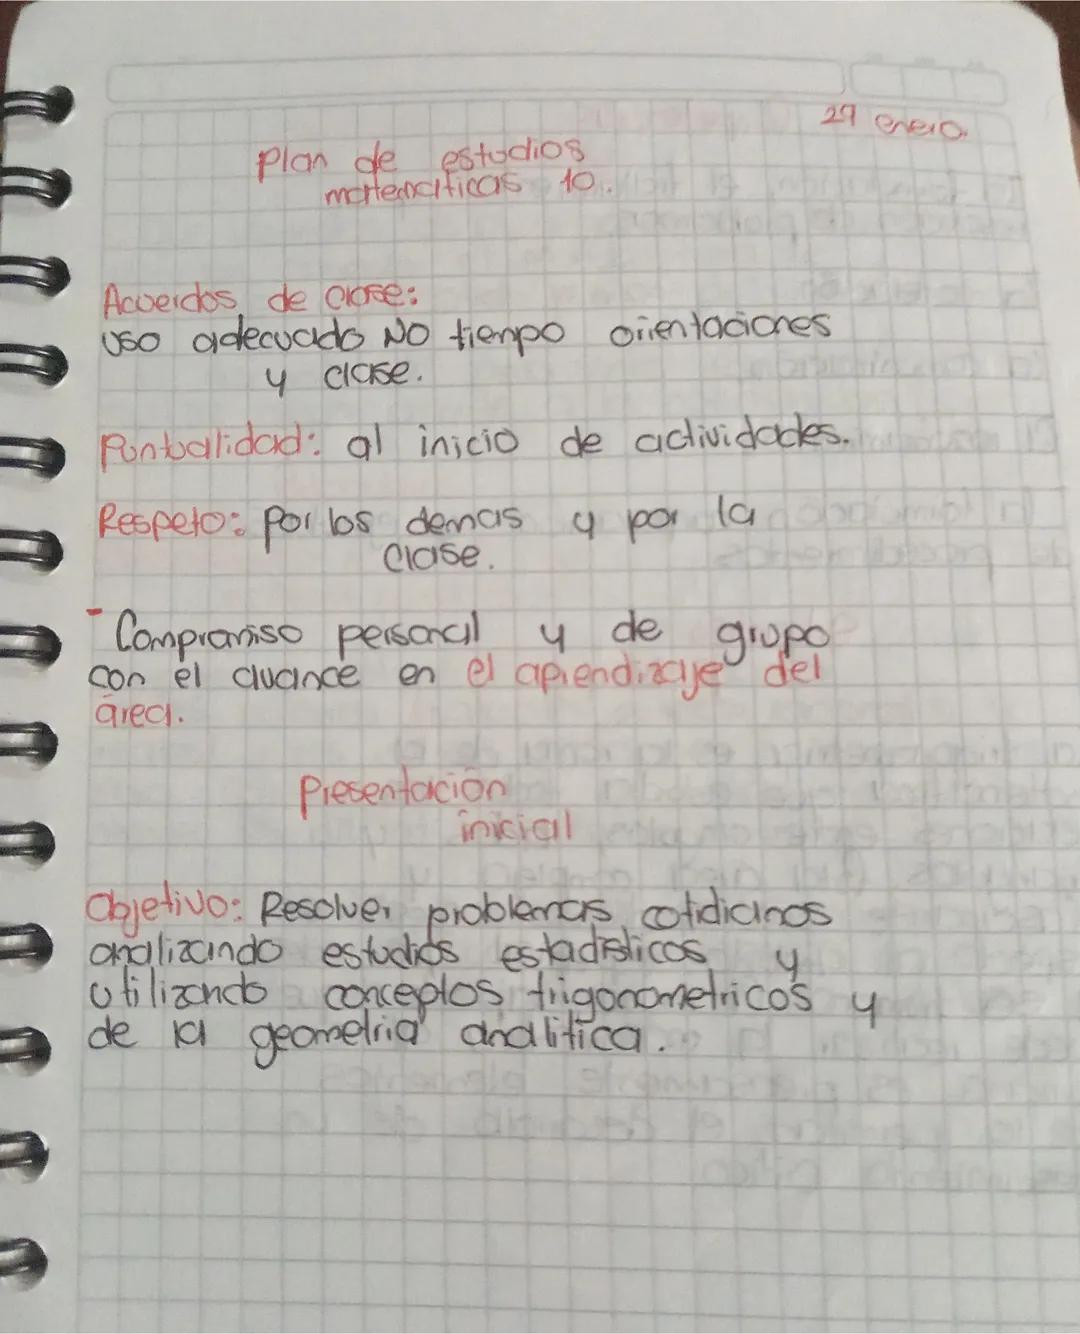 29 enero.
Plan de estudios
matematicas 10.
Acuerdos de clase:
uso adecuado NO tiempo orientaciones
y clase.
Puntualidad: al inicio de actividades.
Respeto: por los demas y por la
clase.
- Compromiso personal y de grupo
con el avance en el aprendizaje del
área.
Presentación
inicial
Objetivo: Resolver problemas cotidianos
analizando estudios estadisticos y
utilizando conceptos trigonometricos y
de la geometria analitica.